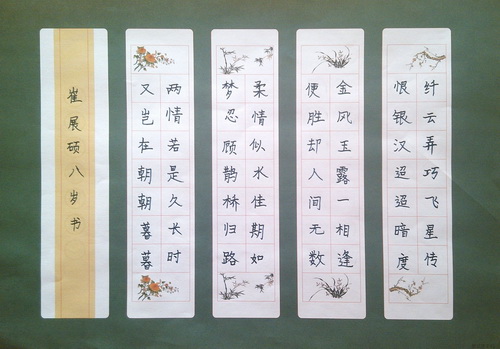 纤云弄巧飞星传
恨银汉迢迢暗度
金风玉露一相逢
便胜却人间无数
柔情似水佳期如
梦忍顾鹊桥归路
两情若是久长时
又岂在朝朝暮暮
崔展硕八岁书